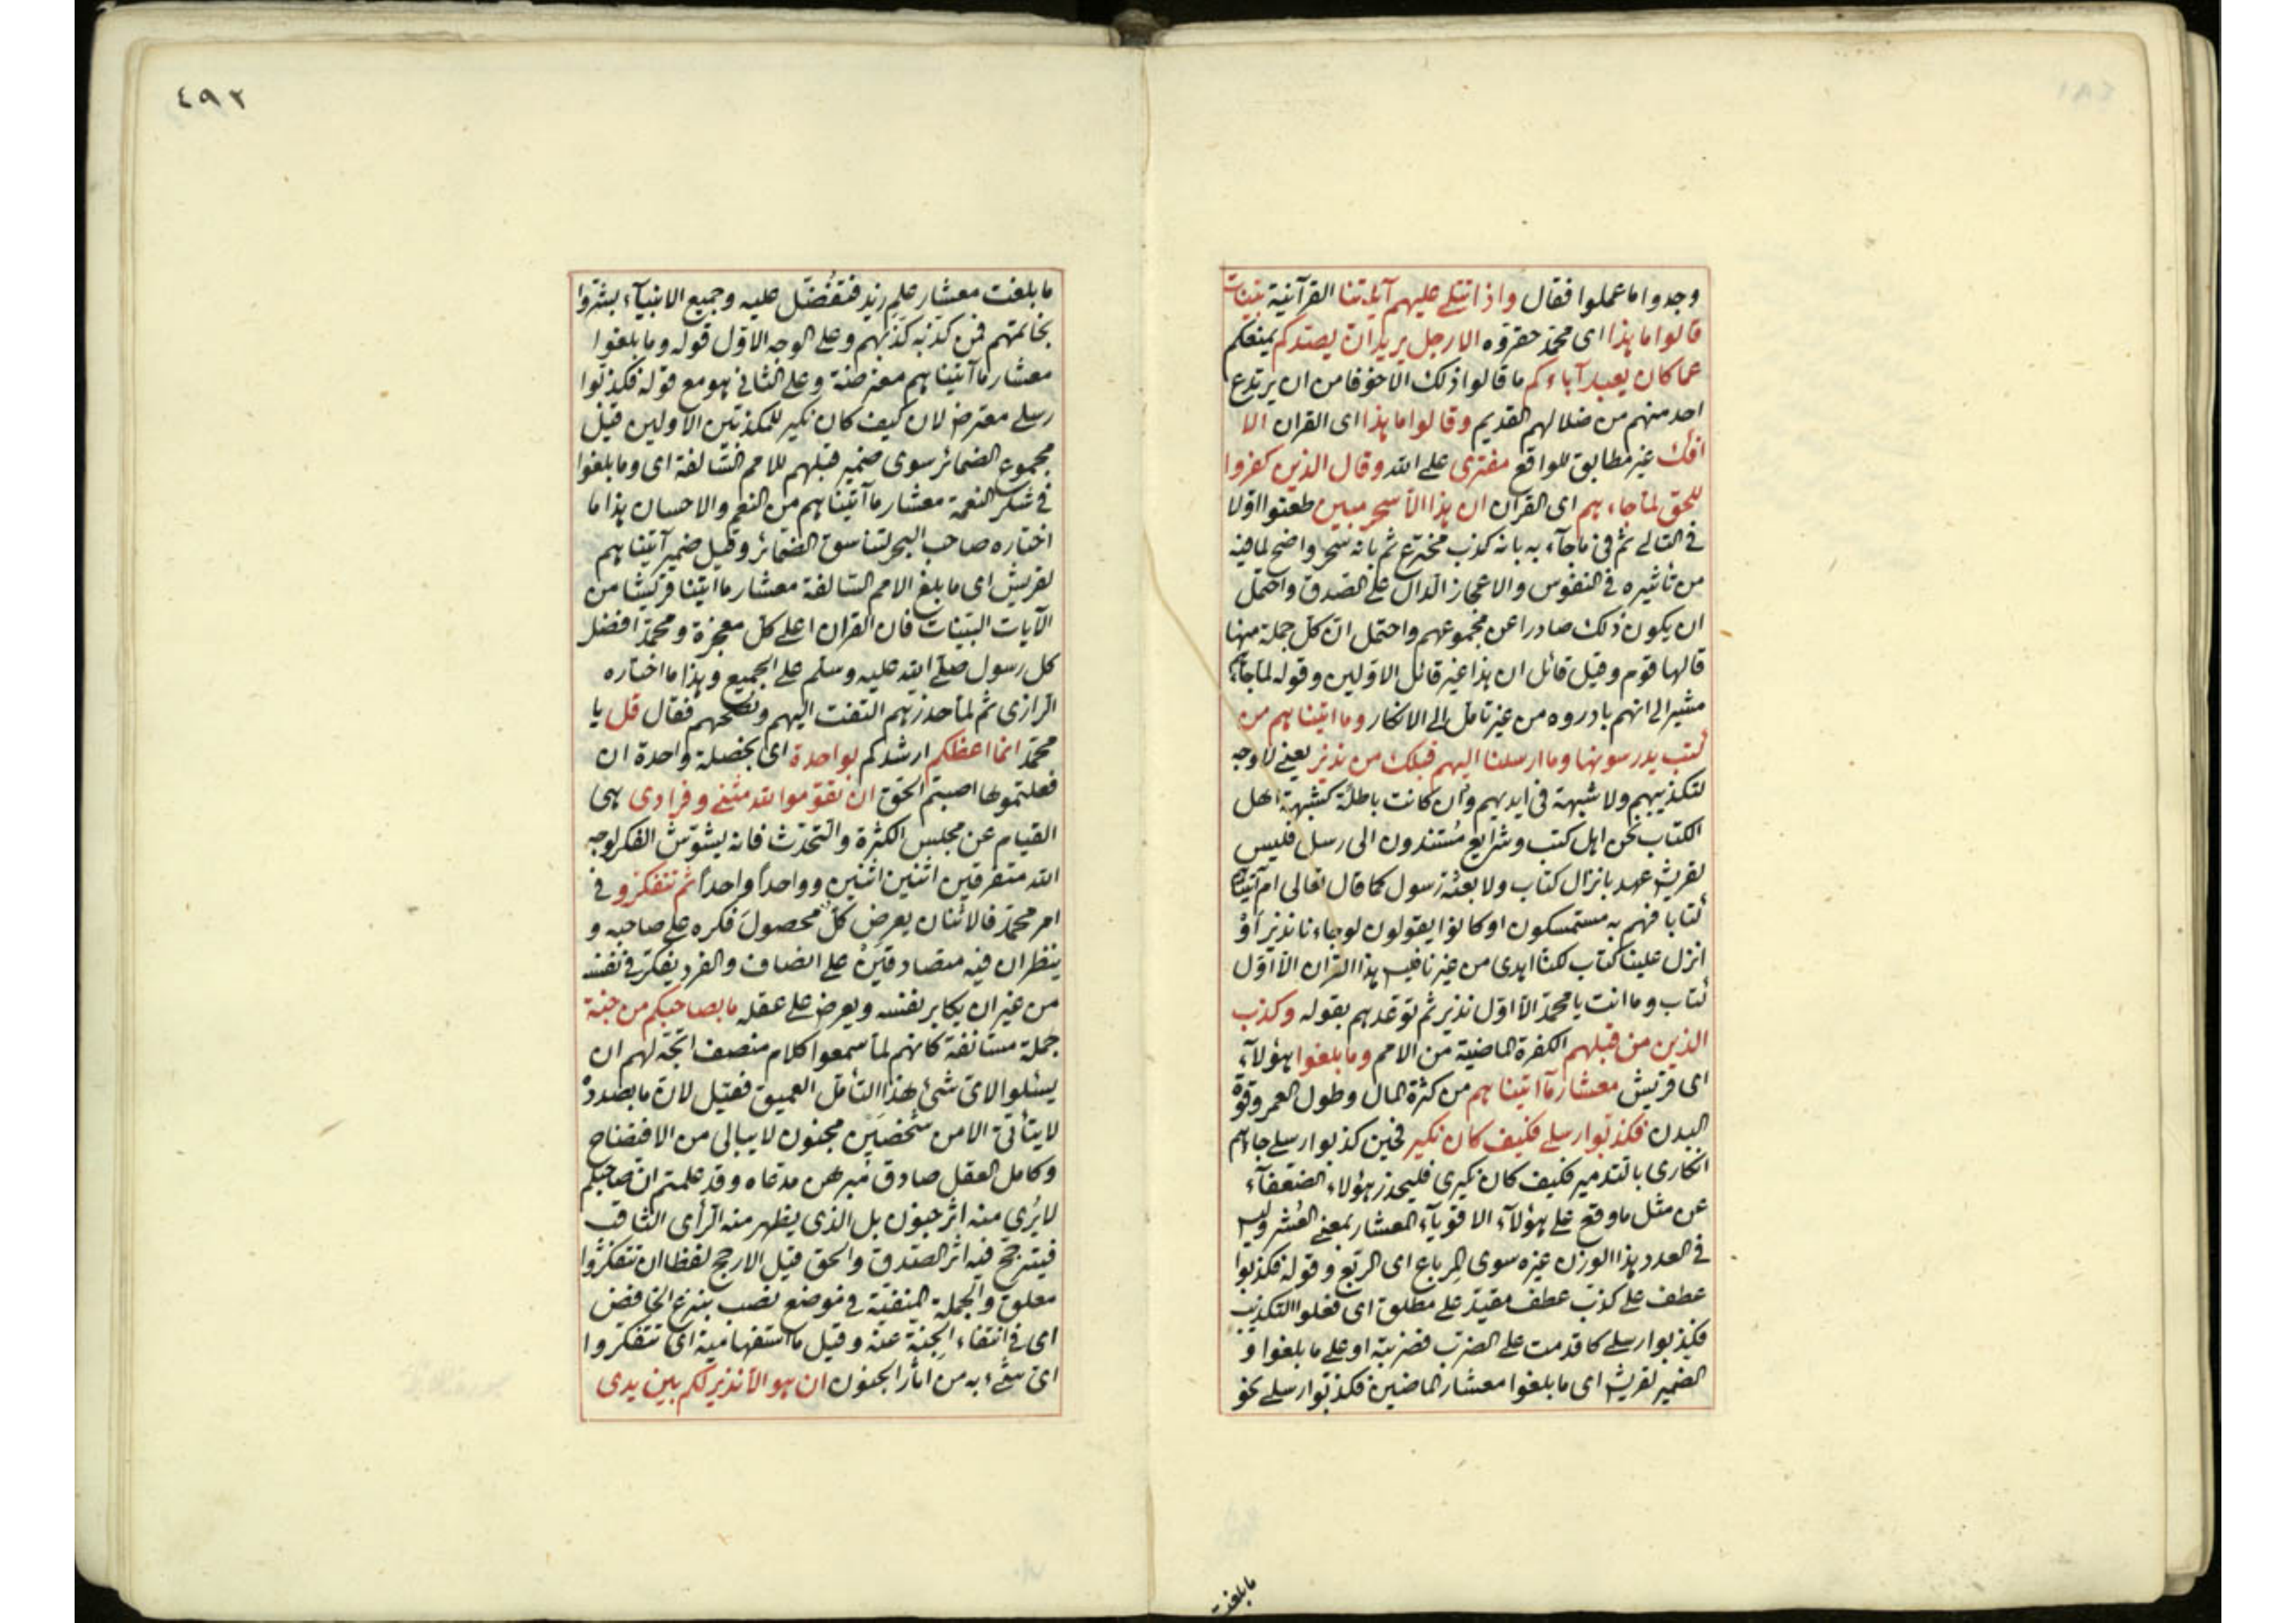 وجدوا ما عملوا فقال واذا تتلى عليهم آياتنا القرآنية بينات
قالوا ما هذا اى محمد حقروه الا رجل يريد ان يصدكم يمنعكم
عما كان يعبد آباءكم ما قالوا ذلك الا خوفا من ان يرتدع
احد منهم من ضلالهم القديم وقالوا ما هذا اى القران الا
افك غير مطابق للواقع مفترى على الله وقال الذين كفروا
للحق لما جاءهم اى القران ان هذا الا سحر مبين طعنوا اولا
فى التالى ثم فى ما جآء به بانه كذب مخترع ثم بانه سحر واضح لما فيه
من تأثيره فى النفوس والاعجاز الدال على الصدق واحتمل
ان يكون ذلك صادرا عن مجموعهم واحتمل ان كل جملة منها
قالها قوم وقيل قائل ان هذا غير قائل الاولين وقوله لما جاءهم
مشير الى انهم بادروه من غير تامل الى الانكار وما اتيناهم من
كتب يدرسونها وما ارسلنا اليهم قبلك من نذير يعنى لا وجه
لتكذيبهم ولا شبهة فى ايديهم وان كانت باطلة كشبهة اهل
الكتاب نحن اهل كتب وشرايع مستندون الى رسل فليس
لقريش عهد بانزال كتاب ولا بعثة رسول كما قال تعالى ام آتيناهم
كتابا فهم به مستمسكون او كانوا يقولون لو جاءنا نذير او
انزل علينا كتاب لكنا اهدى من غيرنا فليس هذا القران الا اول
كتاب وما انت يا محمد الا اول نذير ثم توعدهم بقوله وكذب
الذين من قبلهم الكفرة الماضية من الامم وما بلغوا هؤلآء
اى قريش معشار مآ اتيناهم من كثرة المال وطول العمر وقوة
البدن فكذبوا رسلى فكيف كان نكير فحين كذبوا رسلى جاءهم
انكارى بالتدمير فكيف كان نكيرى فليحذر هؤلاء الضعفآء
عن مثل ما وقع على هؤلآء الاقويآء المعشار بمعنى العُشر وليس
فى العدد هذا الوزن غيره سوى المرباع اى الربع وقوله فكذبوا
عطف على كذب عطف مقيد على مطلق اى فعلوا التكذيب
فكذبوا رسلى كما قدمت على الضرب فضربته او على ما بلغوا و
الضمير لقريش اى ما بلغوا معشار الماضين فكذبوا رسلى نحو
ما بلغت
٤٩٢
ما بلغت معشار علم زيد فتفضل عليه وجميع الانبيآء بشروا
بخاتمتهم فمن كذبه كذبهم وعلى الوجه الاول قوله وما بلغوا
معشار ما آتيناهم معترضة وعلى الثانى هو مع قوله فكذبوا
رسلى معترض لان كيف كان نكير للمكذبين الاولين قيل
مجموع الضمائر سوى ضمير قبلهم للامم السالفة اى وما بلغوا
فى شكر النعمة معشار ما آتيناهم من النعم والاحسان هذا ما
اختاره صاحب البحر لتناسق الضمائر وقيل ضمير آتيناهم
لقريش اى ما بلغ الامم السالفة معشار ما اتينا قريشا من
الآيات البينات فان القران اعلى كل معجزة ومحمد افضل
كل رسول صلى الله عليه وسلم على الجميع وهذا ما اختاره
الرازى ثم لما حذرهم التفت اليهم ونصحهم فقال قل يا
محمد انما اعظكم ارشدكم بواحدة اى بخصلة واحدة ان
فعلتموها اصبتم الحق ان تقوموا لله مثنى وفرادى هى
القيام عن مجلس الكثرة والتحدث فانه يشوش الفكر لوجه
الله متفرقين اثنين اثنين وواحداً واحداً ثم تتفكروا فى
امر محمد فالاثنان يعرض كلٌ محصولَ فكره على صاحبه و
ينظران فيه متصادقين على انصاف والفرد يفكر فى نفسه
من غير ان يكابر نفسه ويعرض على عقله ما بصاحبكم من جنة
جملة مستأنفة كانهم لما سمعوا كلام منصف اتجه لهم ان
يسئلوا لاى شئ هذا التأمل العميق فقيل لان ما بصدده
لا يتأتى الا من شخصين مجنون لا يبالى من الافتضاح
وكامل العقل صادق مبرهن مدعاه وقد علمتم ان صاحبكم
لا يُرى منه اثر جنون بل الذى يظهر منه الرأى الثاقب
فيترجح فيه اثر الصدق والحق قيل الارجح لفظا ان تتفكروا
معلق والجملة المنفية فى موضع نصب بنزع الخافض
اى فى انتفاء الجنة عنه وقيل ما استفهامية اى تتفكروا
اى شئ به من اثار الجنون ان هو الا نذير لكم بين يدى